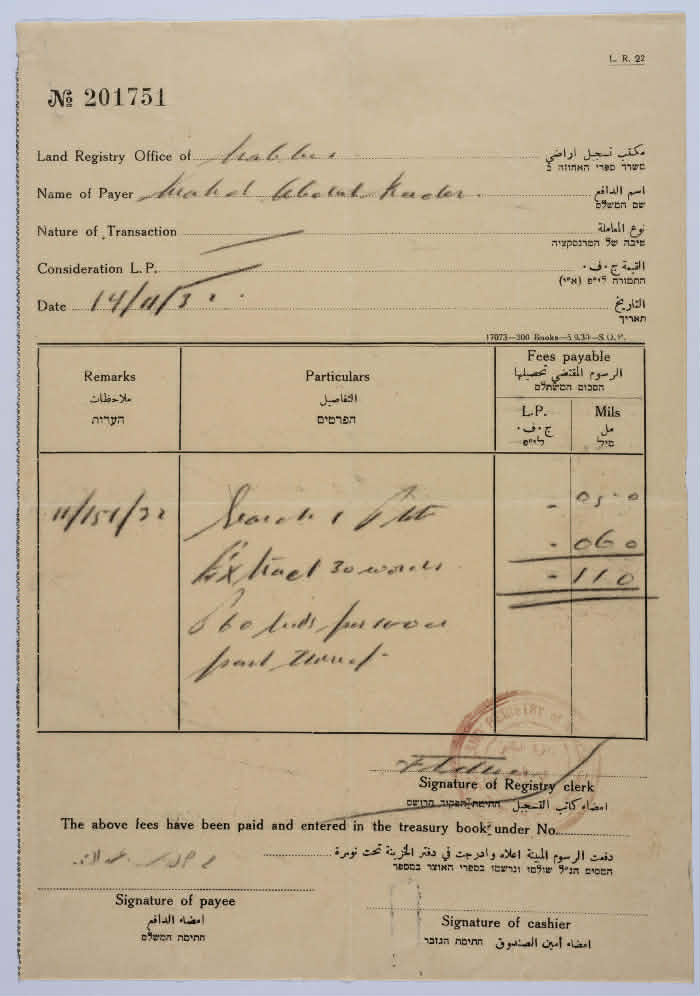 L. R. 22
№ 201751
Land Registry Office of Nablus مكتب تسجيل اراضي
משרד ספרי האחוזה ב
Name of Payer Abdul Kader اسم الدافع
שם המשלם
Nature of Transaction نوع المعاملة
טיבה של הטרנסקציה
Consideration L. P. القيمة ج٠ف٠
התמורה לי״פ (א״י)
Date 14/11/32 التاريخ
תאריך
17073—300 Books—5.9.30—S.O.P.
Remarks Particulars Fees payable
ملاحظات التفاصيل الرسوم المقتضي تحصيلها
הערות הפרטים הסכום המשתלם
L.P. Mils
ج٠ف٠ مل
לי״פ מיל
11/151/32 Search 1 - 050
Extract 30 words - 060
- 110
60 mils per 100
part thereof
LAND REGISTRY OF
Signature of Registry clerk
امضاء كاتب التسجيل חתימת הפקיד הרושם
The above fees have been paid and entered in the treasury book under No.
دفعت الرسوم المبينة اعلاه وادرجت في دفتر الخزينة تحت نومرة
המסים הנ״ל שולמו ונרשמו בספרי האוצר במספר
Signature of payee
امضاء الدافع
חתימת המשלם
Signature of cashier
امضاء أمين الصندوق חתימת הגזבר